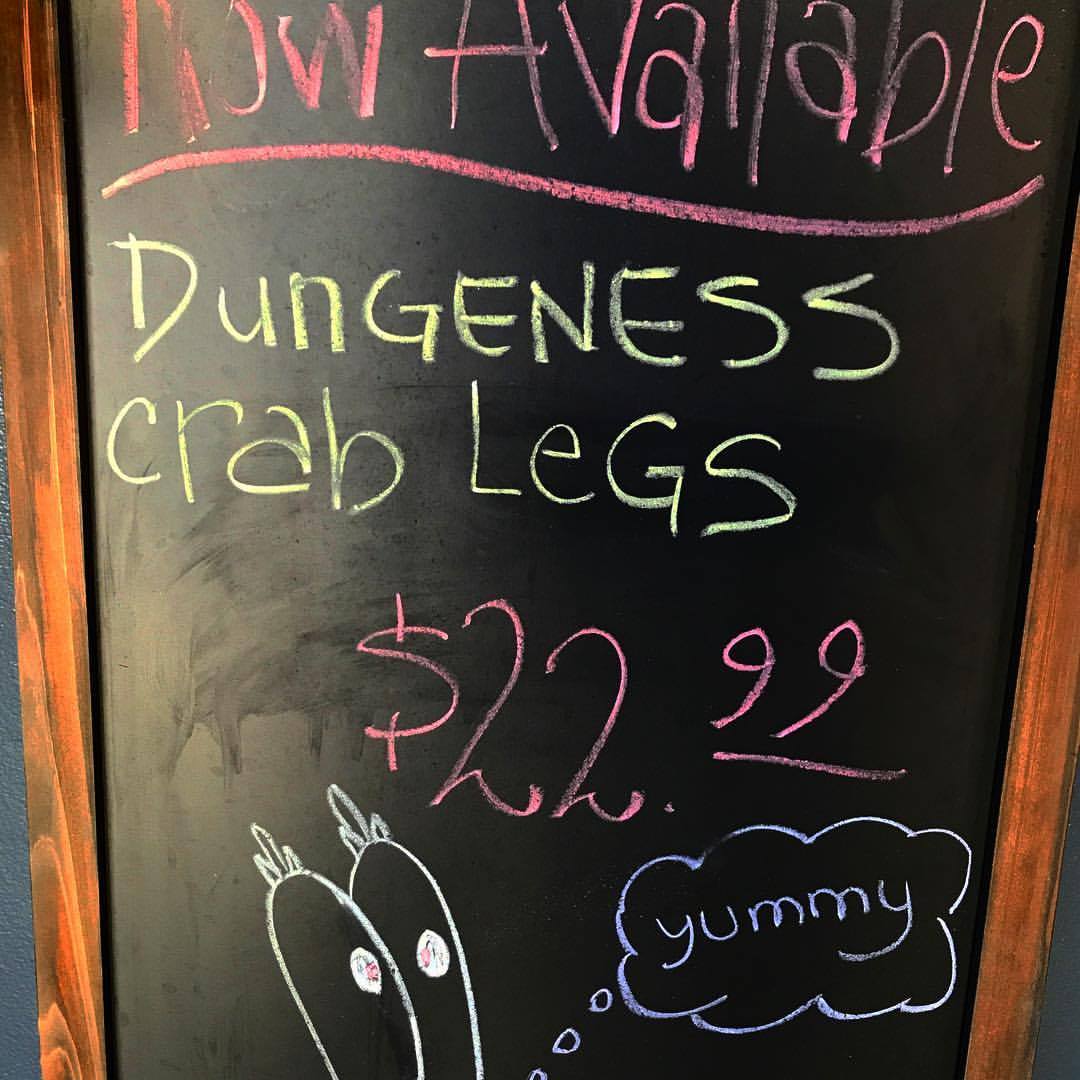 Now Available
DunGENESS
crab LeGS
$22.99
yummy